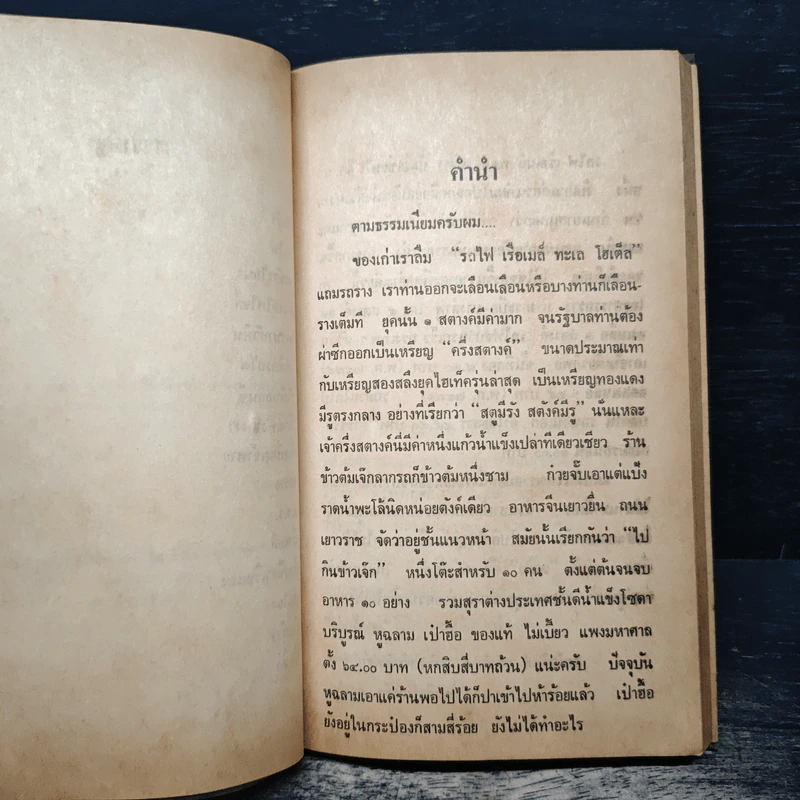 คำนำ
ตามธรรมเนียมครับผม....
ของเก่าเราลืม “รถไฟ เรือเมล์ ทะเล โฮเต็ล”
แถมรถราง เราท่านออกจะเลือนเลือนหรือบางท่านก็เลือน-
รางเต็มที ยุคนั้น ๑ สตางค์มีค่ามาก จนรัฐบาลท่านต้อง
ผ่าซีกออกเป็นเหรียญ “ครึ่งสตางค์” ขนาดประมาณเท่า
กับเหรียญสองสลึงยุคไฮเท็ครุ่นล่าสุด เป็นเหรียญทองแดง
มีรูตรงกลาง อย่างที่เรียกว่า “สตูมีรัง สตังค์มีรู” นั่นแหละ
เจ้าครึ่งสตางค์นี่มีค่าหนึ่งแก้วน้ำแข็งเปล่าทีเดียวเชียว ร้าน
ข้าวต้มเจ๊กลากรถก็ข้าวต้มหนึ่งชาม ก๋วยจั๊บเอาแต่แป้ง
ราดน้ำพะโล้นิดหน่อยตังค์เดียว อาหารจีนเยาวยื่น ถนน
เยาวราช จัดว่าอยู่ชั้นแนวหน้า สมัยนั้นเรียกกันว่า “ไป
กินข้าวเจ๊ก” หนึ่งโต๊ะสำหรับ ๑๐ คน ตั้งแต่ต้นจนจบ
อาหาร ๑๐ อย่าง รวมสุราต่างประเทศชั้นดีน้ำแข็งโซดา
บริบูรณ์ หูฉลาม เป๋าฮื้อ ของแท้ ไม่เบี้ยว แพงมหาศาล
ตั้ง ๖๔.๐๐ บาท (หกสิบสี่บาทถ้วน) แน่ะครับ ปัจจุบัน
หูฉลามเอาแค่ร้านพอไปได้ก็ปาเข้าไปห้าร้อยแล้ว เป๋าฮื้อ
ยังอยู่ในกระป๋องก็สามสี่ร้อย ยังไม่ได้ทำอะไร